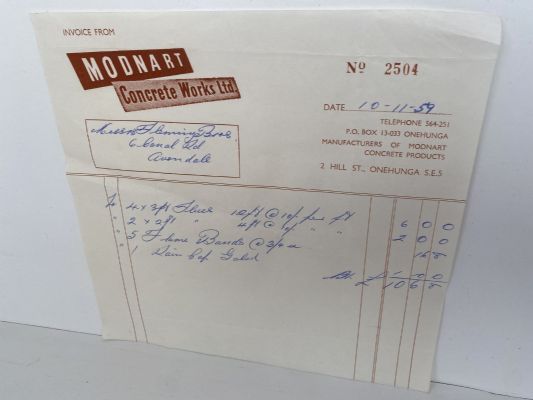 INVOICE FROM
MODNART
Concrete Works Ltd.
Nº 2504
DATE 10-11-59
TELEPHONE 564-251
P.O. BOX 13-033 ONEHUNGA
MANUFACTURERS OF MODNART
CONCRETE PRODUCTS
2 HILL ST., ONEHUNGA S.E.5
Messrs Fleming Bros.
6 Canal Rd
Avondale
To 4 x 3ft Flue 12ft @ 10/- per ft 6 0 0
" 2 x 2ft " 4ft @ 10/- " " 2 0 0
" 5 Flue Bands @ 3/4 ea 16 8
" 1 Rain Cap
£ 10 6 8